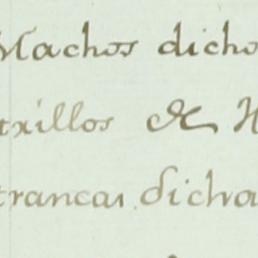 Machos dicho
txillos de H
trancas dicha